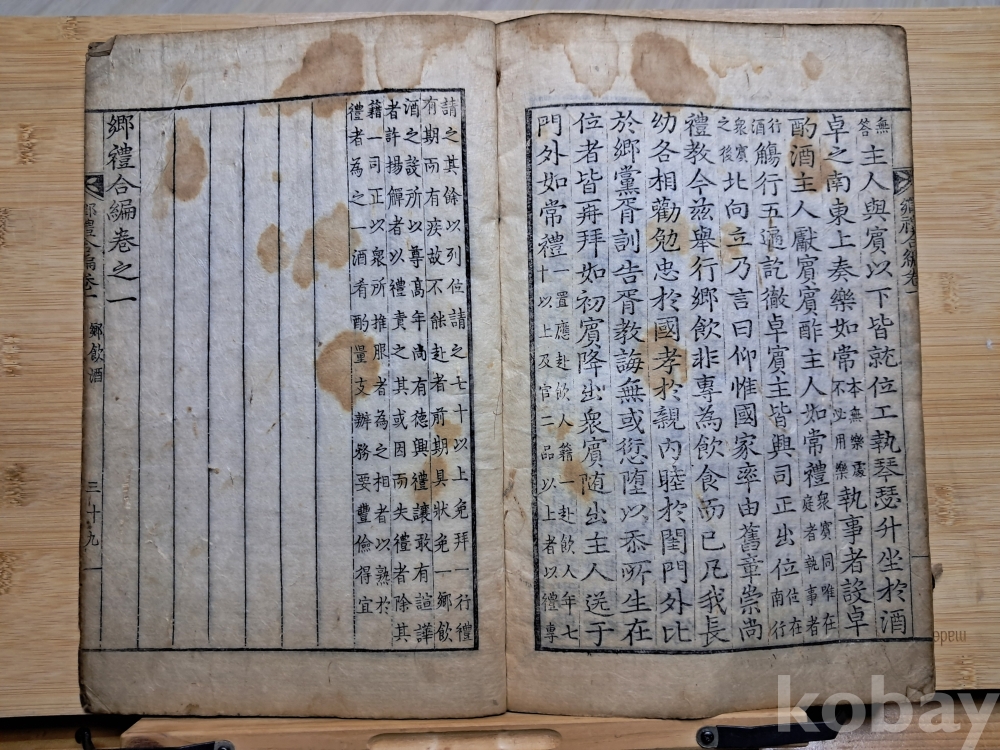 無答主人與賓以下皆就位工執琴瑟升坐於酒
卓之南東上奏樂如常本無樂處不必用樂執事者設卓
酌酒主人獻賓賓酢主人如常禮衆賓同唯在庭者執事者
行酒觴行五遍訖徹卓賓主皆興司正出位位在南行
衆賓之後北向立乃言曰仰惟國家率由舊章崇尚
禮教今茲舉行鄉飲非專為飲食而已凡我長
幼各相勸勉忠於國孝於親內睦於閨門外比
於鄉黨胥訓告胥教誨無或愆墮以忝所生在
位者皆再拜如初賓降出衆賓隨出主人送于
門外如常禮一置應赴飲人籍一赴飲人年七十以上及官二品以上者以禮專
鄉禮合編卷
請之其餘以列位請之七十以上免拜一行禮
有期而有疾故不能赴者前期具狀免一鄉飲
酒之設所以尊高年尚有德興禮讓敢有諠譁
者許揚觶者以禮責之其或因而失禮者除其
籍一司正以衆所推服者為之相者以熟於
禮者為之一酒肴酌量支辦務要豐儉得宜
鄉禮合編卷之一
鄉禮合編卷一 鄉飲酒 三十九
made
kobay